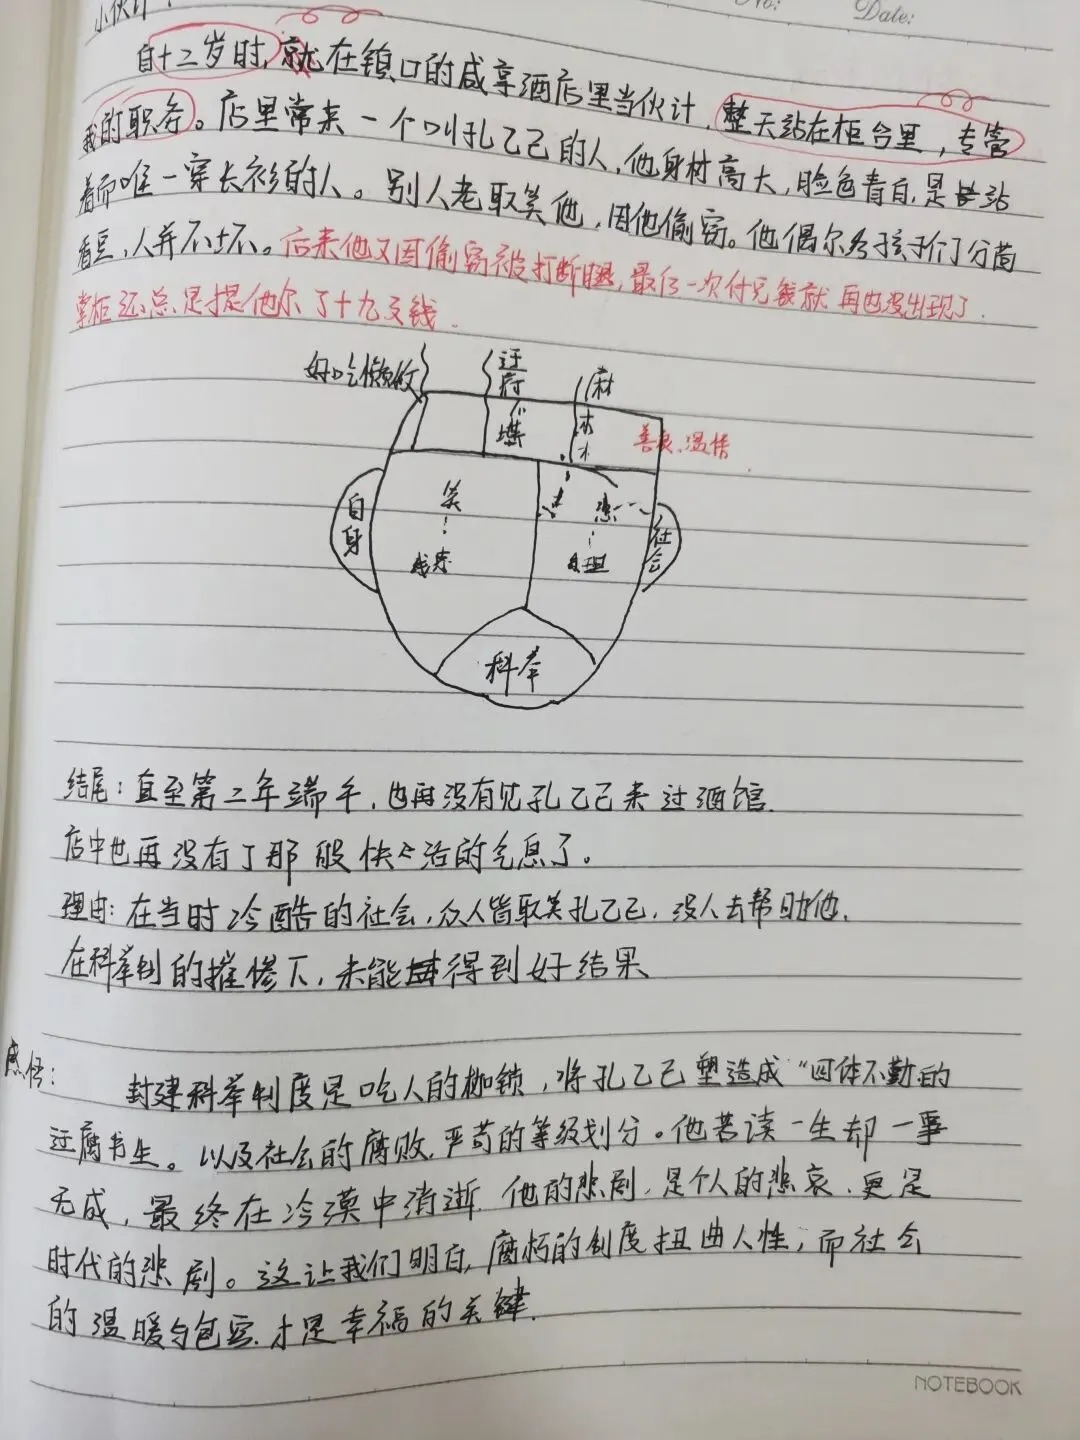 小伙计:
No: Date:
自十二岁时,就在镇口的咸亨酒店里当伙计,整天站在柜台里,专管
我的职务。店里常来一个叫孔乙己的人,他身材高大,脸色青白,是站
着而唯一穿长衫的人。别人老取笑他,因他偷窃。他偶尔给孩子们分茴
香豆,人并不坏。后来他又因偷窃被打断腿,最后一次付完钱就再也没出现了.
掌柜还总是提他欠了十九文钱.
好吃懒做 迂腐 麻木
不堪
善良、温情
自身 笑 悲 社会
科举
结尾:直至第二年端午,也再没有见孔乙己来过酒馆.
店中也再没有了那般快活的气息了。
理由:在当时冷酷的社会,众人皆取笑孔乙己,没人去帮助他.
在科举制的摧惨下,未能得到好结果
感悟:
封建科举制度是吃人的枷锁,将孔乙己塑造成“四体不勤的
迂腐书生。以及社会的腐败,严苛的等级划分。他苦读一生却一事
无成,最终在冷漠中消逝.他的悲剧,是个人的悲哀.更是
时代的悲剧。这让我们明白,腐朽的制度扭曲人性,而社会
的温暖与包容.才是幸福的关键.
NOTEBOOK